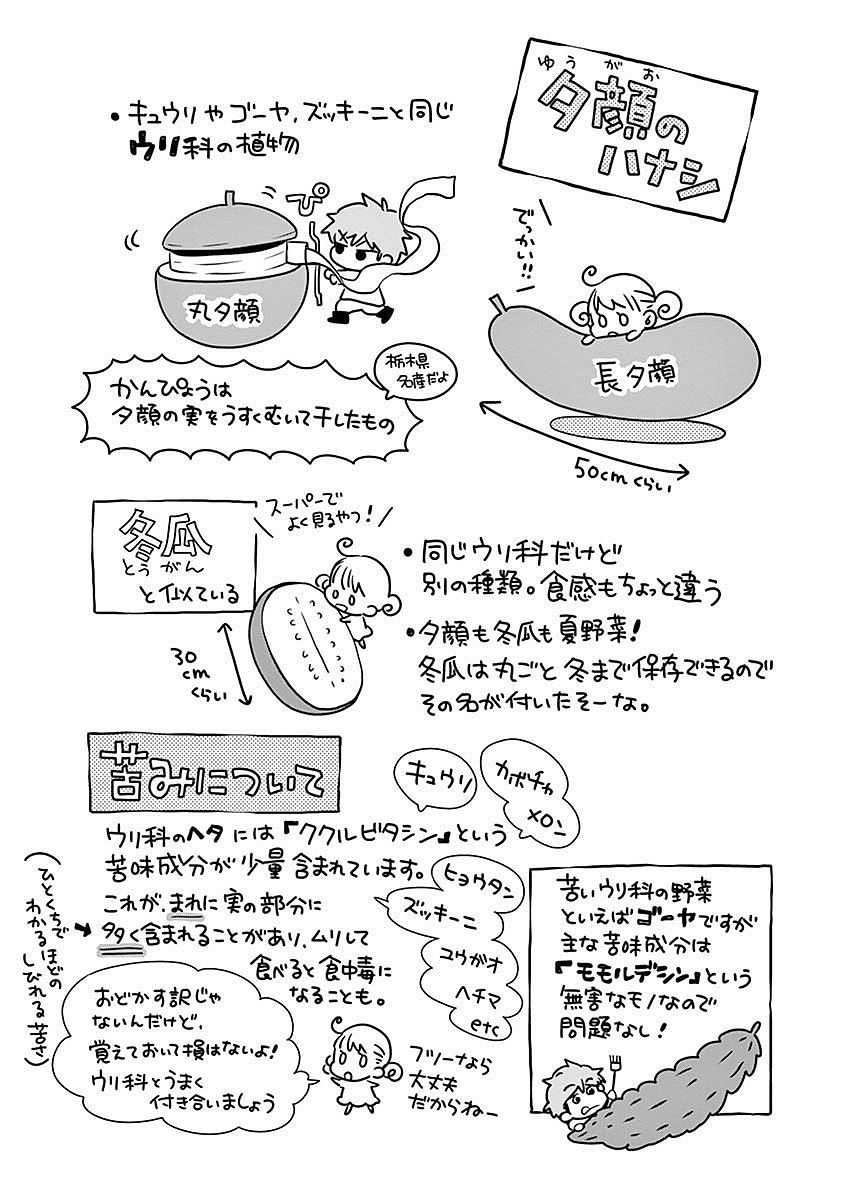 ゆうがお
夕顔の
ハナシ
・キュウリやゴーヤ、ズッキーニと同じ
ウリ科の植物
ぴ
丸夕顔
でっかい!!
長夕顔
50cmくらい
栃木県
名産だよ
かんぴょうは
夕顔の実をうすくむいて干したもの
冬瓜
とうがん
と似ている
スーパーで
よく見るやつ!
30
cm
くらい
・同じウリ科だけど
別の種類。食感もちょっと違う
・夕顔も冬瓜も夏野菜!
冬瓜は丸ごと冬まで保存できるので
その名が付いたそーな。
苦みについて
キュウリ
カボチャ
メロン
ウリ科のヘタには『ククルビタシン』という
苦味成分が少量含まれています。
これが、まれに実の部分に
多く含まれることがあり、ムリして
食べると食中毒に
なることも。
(ひとくちで
わかるほどの
しびれる苦さ)
ヒョウタン
ズッキーニ
ユウガオ
ヘチマ
etc
おどかす訳じゃ
ないんだけど、
覚えておいて損はないよ!
ウリ科とうまく
付き合いましょう
フツーなら
大丈夫
だからねー
苦いウリ科の野菜
といえばゴーヤですが
主な苦味成分は
『モモルデシン』という
無害なモノなので
問題なし!